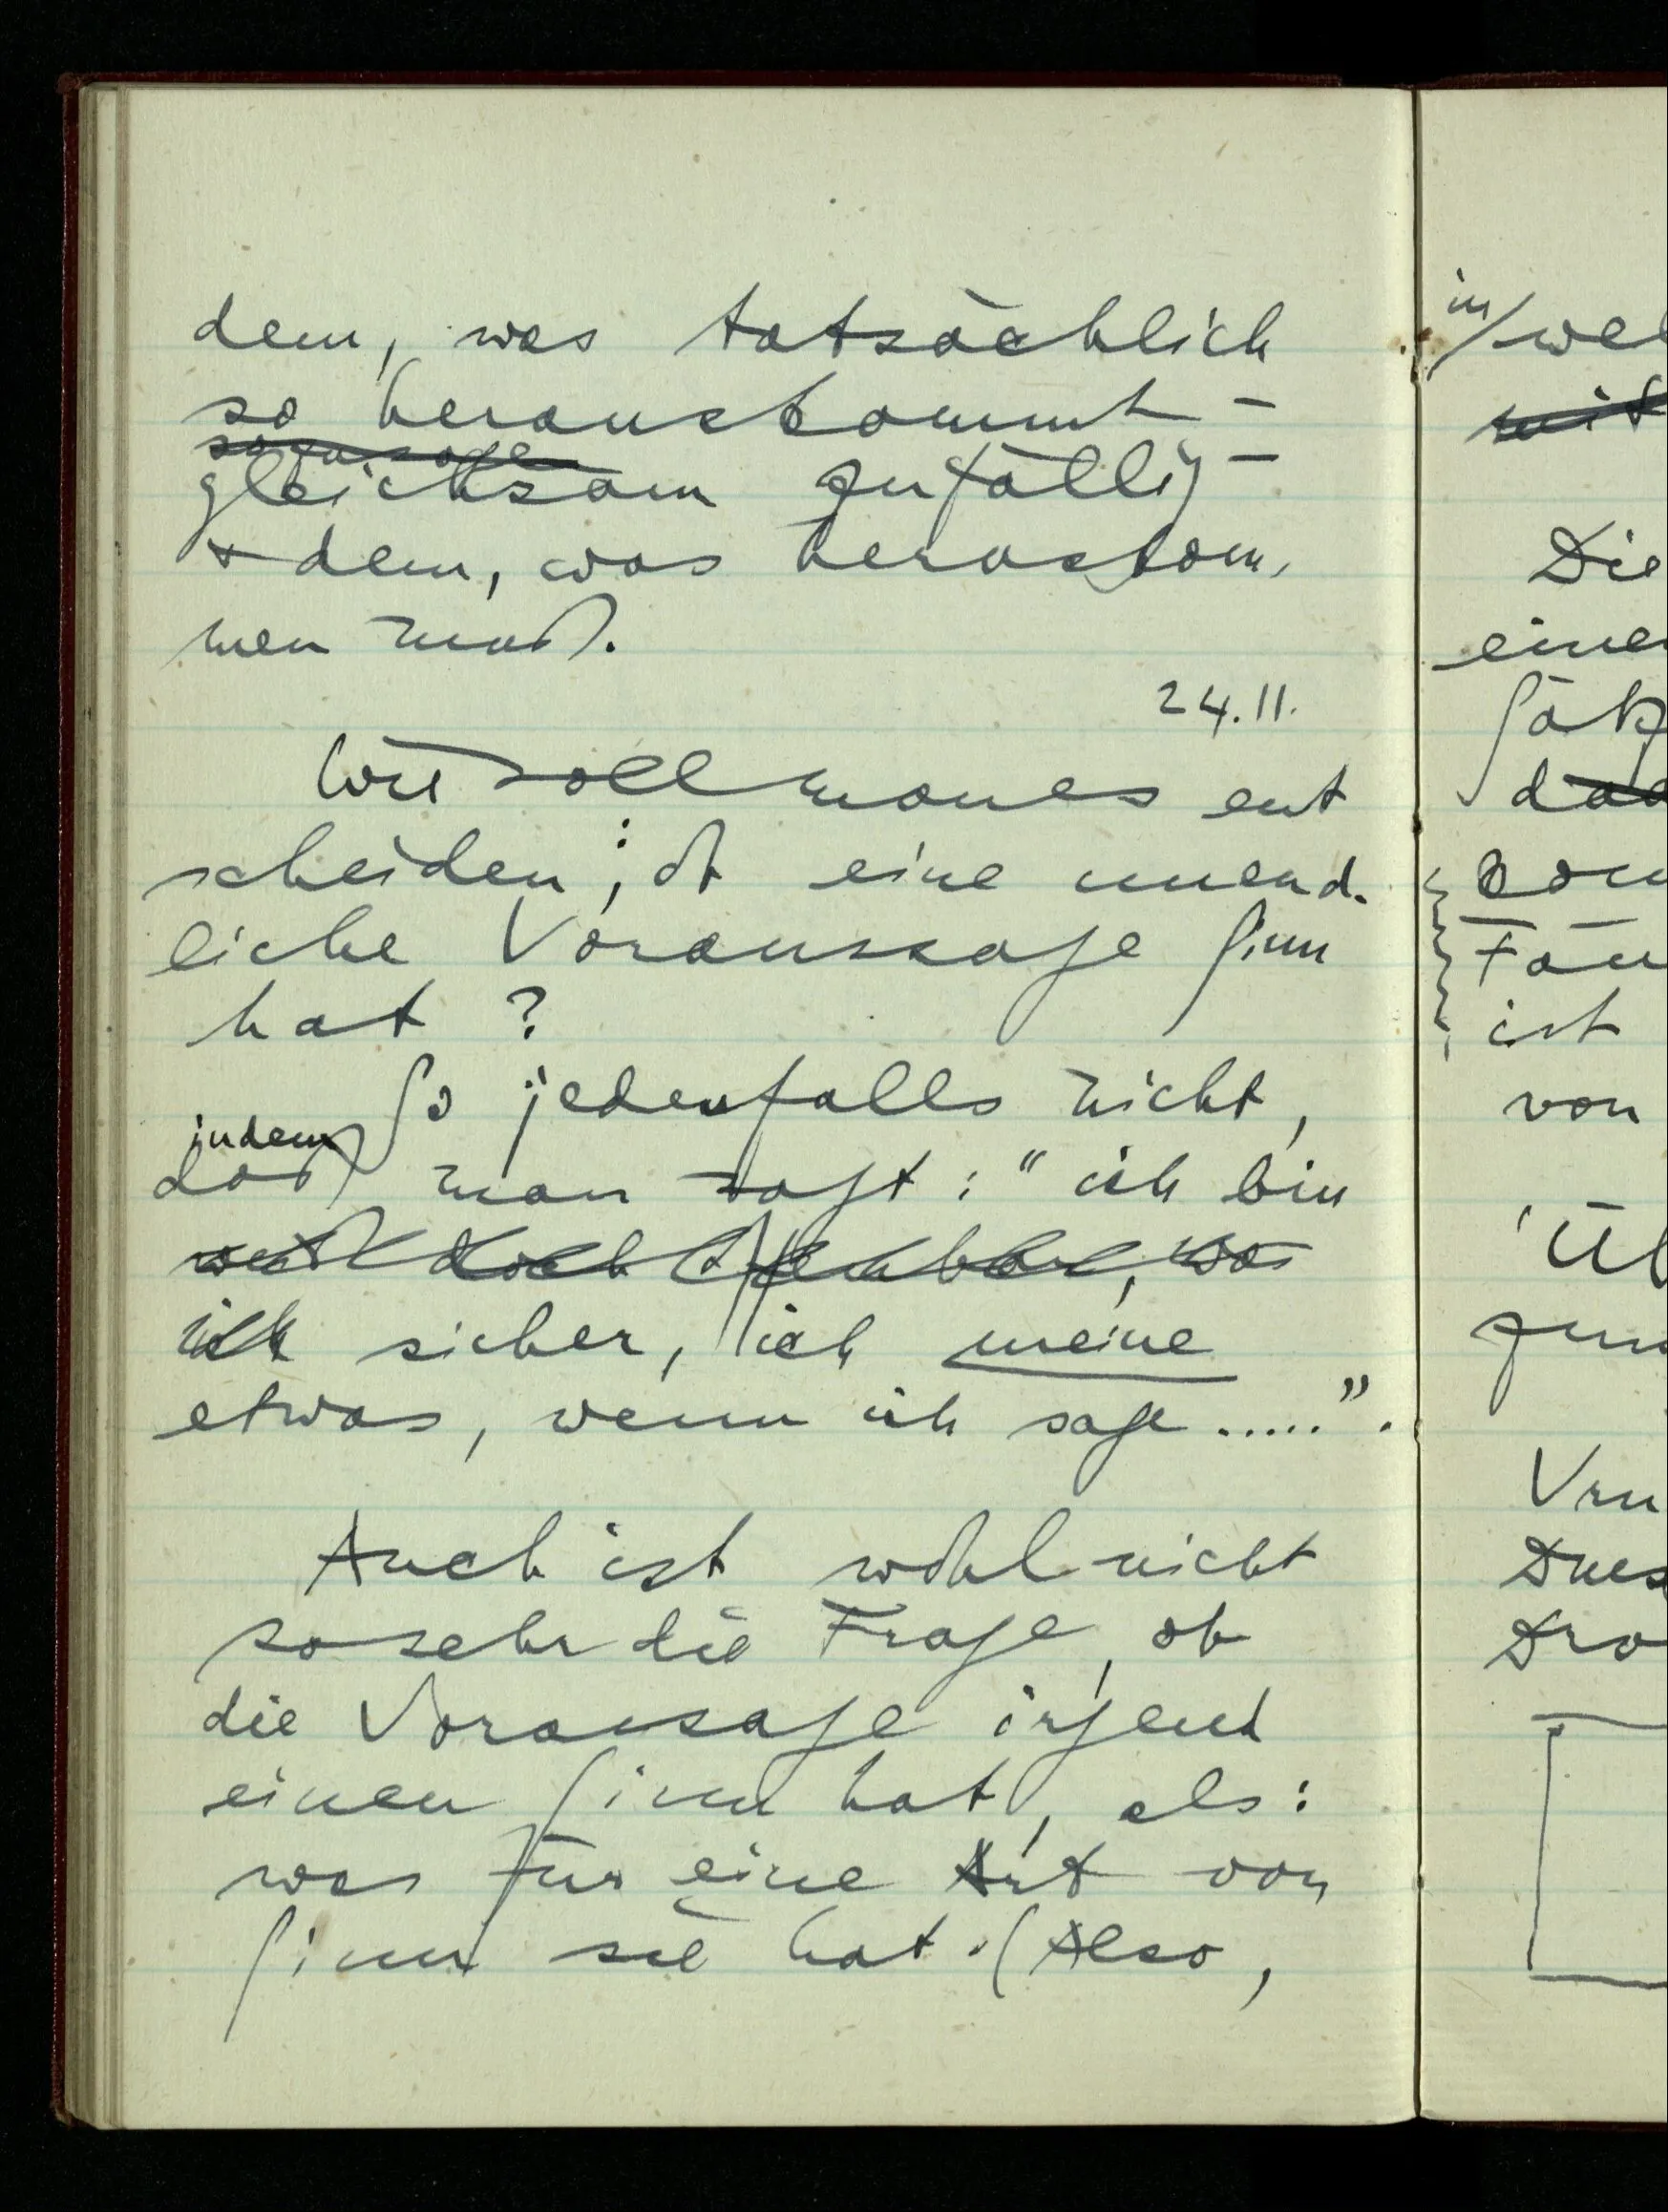 dem, was tatsächlich
so herauskommt –
sozusagen
gleichsam zufällig –
& dem, was herauskom-
men muß.
24.11.
Wie soll man es ent
scheiden; ob eine unend-
liche Voraussage Sinn
hat ?
So jedenfalls nicht,
indem
daß man sagt: “ich bin
doch
sicher, ich meine
etwas, wenn ich sage .....”.
Auch ist wohl nicht
so sehr die Frage, ob
die Voraussage irgend
einen Sinn hat, als:
was für eine Art von
Sinn sie hat. (Also,
in
mit
Die
von